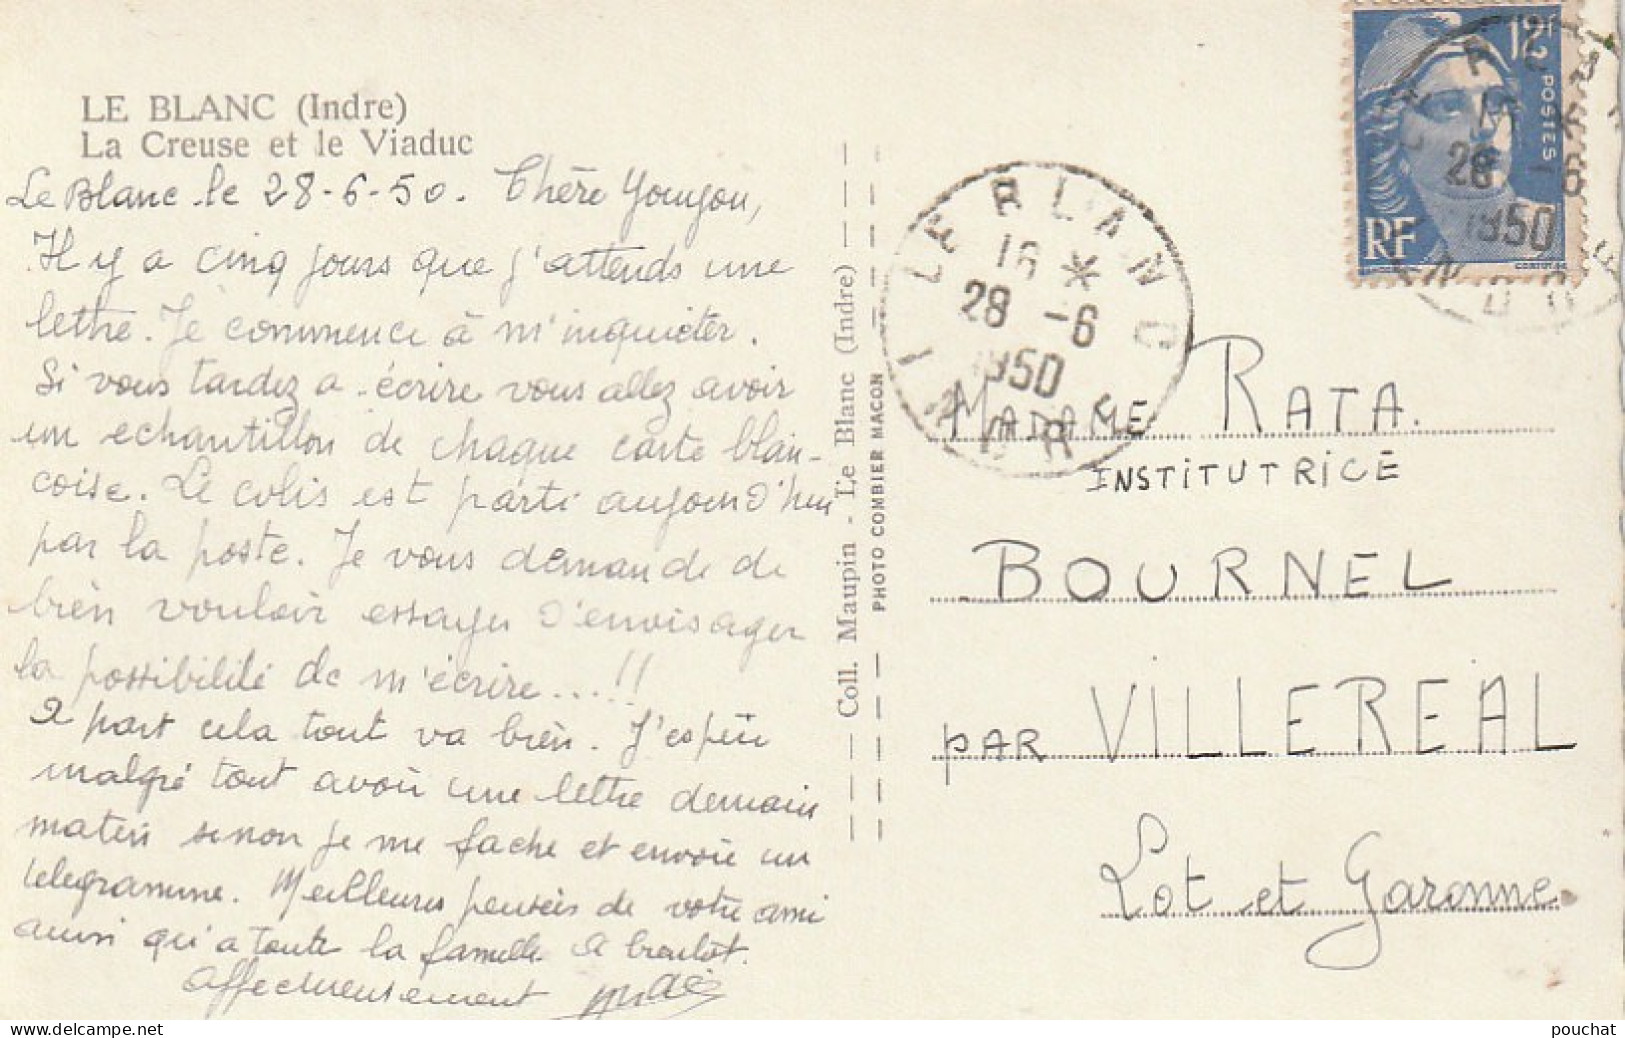 LE BLANC (Indre)
La Creuse et le Viaduc
Le Blanc le 28-6-50. Chère Youyou,
Il y a cinq jours que j'attends une
lettre. Je commence à m'inquieter.
Si vous tardez a écrire vous allez avoir
un echantillon de chaque carte blan-
coise. Le colis est parti aujourd'hui
par la poste. Je vous demande de
bien vouloir essayer d'envisager
la possibilité de m'écrire...!!
A part cela tout va bien. J'espère
malgré tout avoir une lettre demain
matin sinon je me fache et envoie un
telegramme. Meilleures pensées de votre ami
ainsi qu'a toute la famille. A bientôt.
Affectueusement
Coll. Maupin - Le Blanc (Indre)
PHOTO COMBIER MACON
LE BLANC
16 *
28 -6
1950
INDRE
12F
POSTES
RF
28 -6
1950
MADAME RATA.
INSTITUTRICE
BOURNEL
PAR VILLEREAL
Lot et Garonne
delcampe.net
pouchat